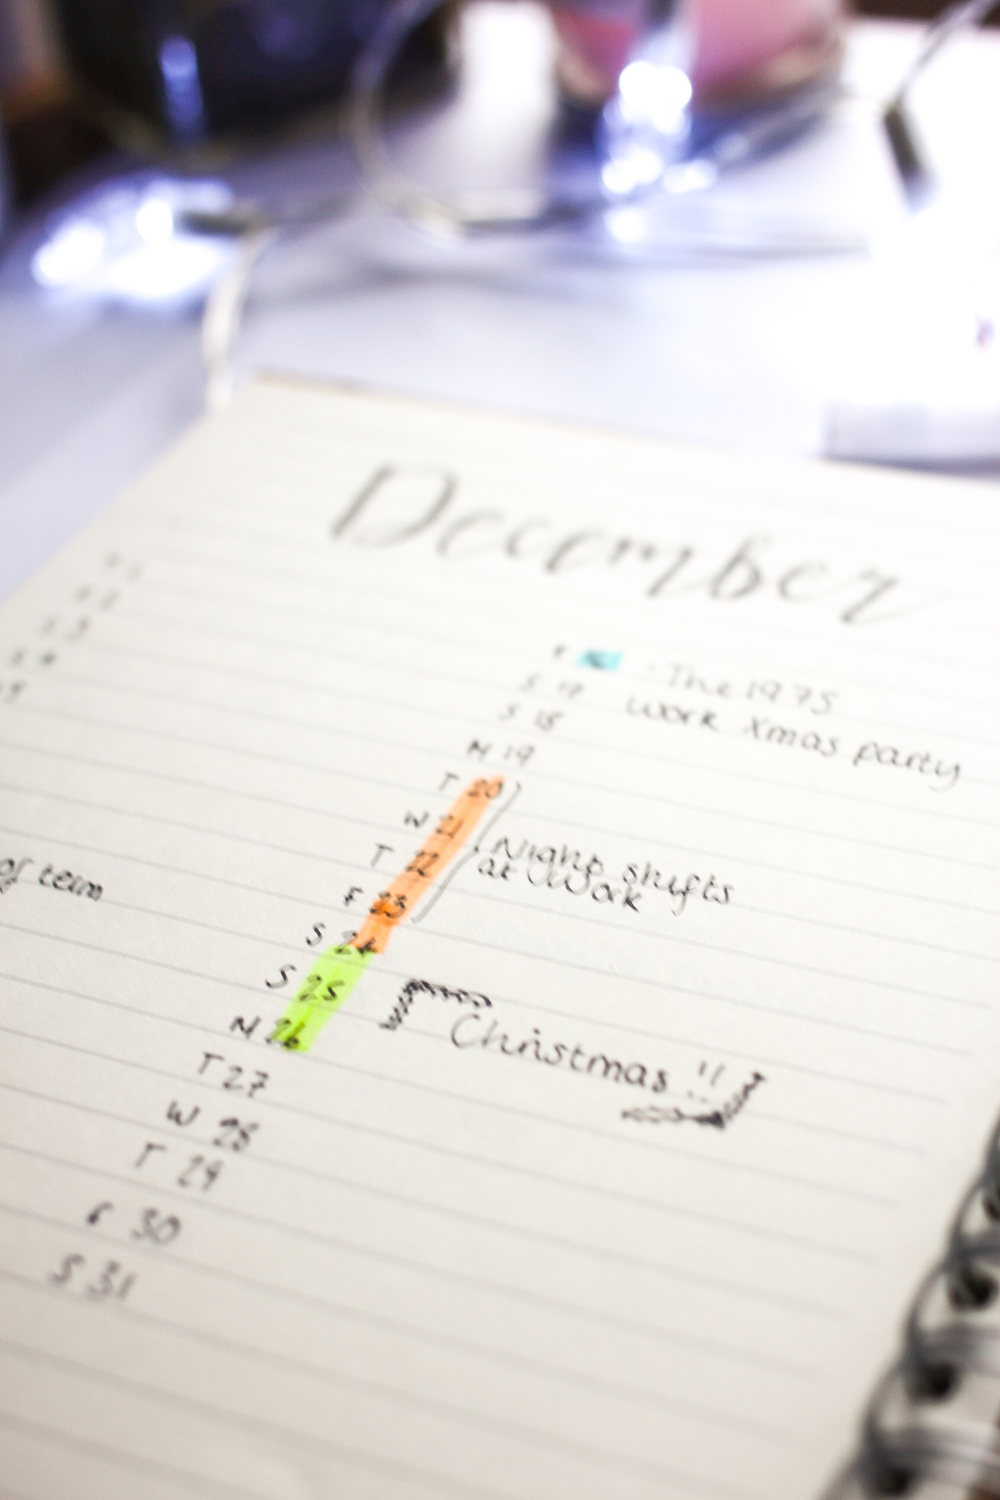 December
1
2
3
4
5
of term
F 16 - The 1975
S 17 work Xmas party
S 18
M 19
T 20
W 21
T 22 Night shifts
at Work
F 23
S 24
S 25
M 26 Christmas !!
T 27
W 28
T 29
F 30
S 31